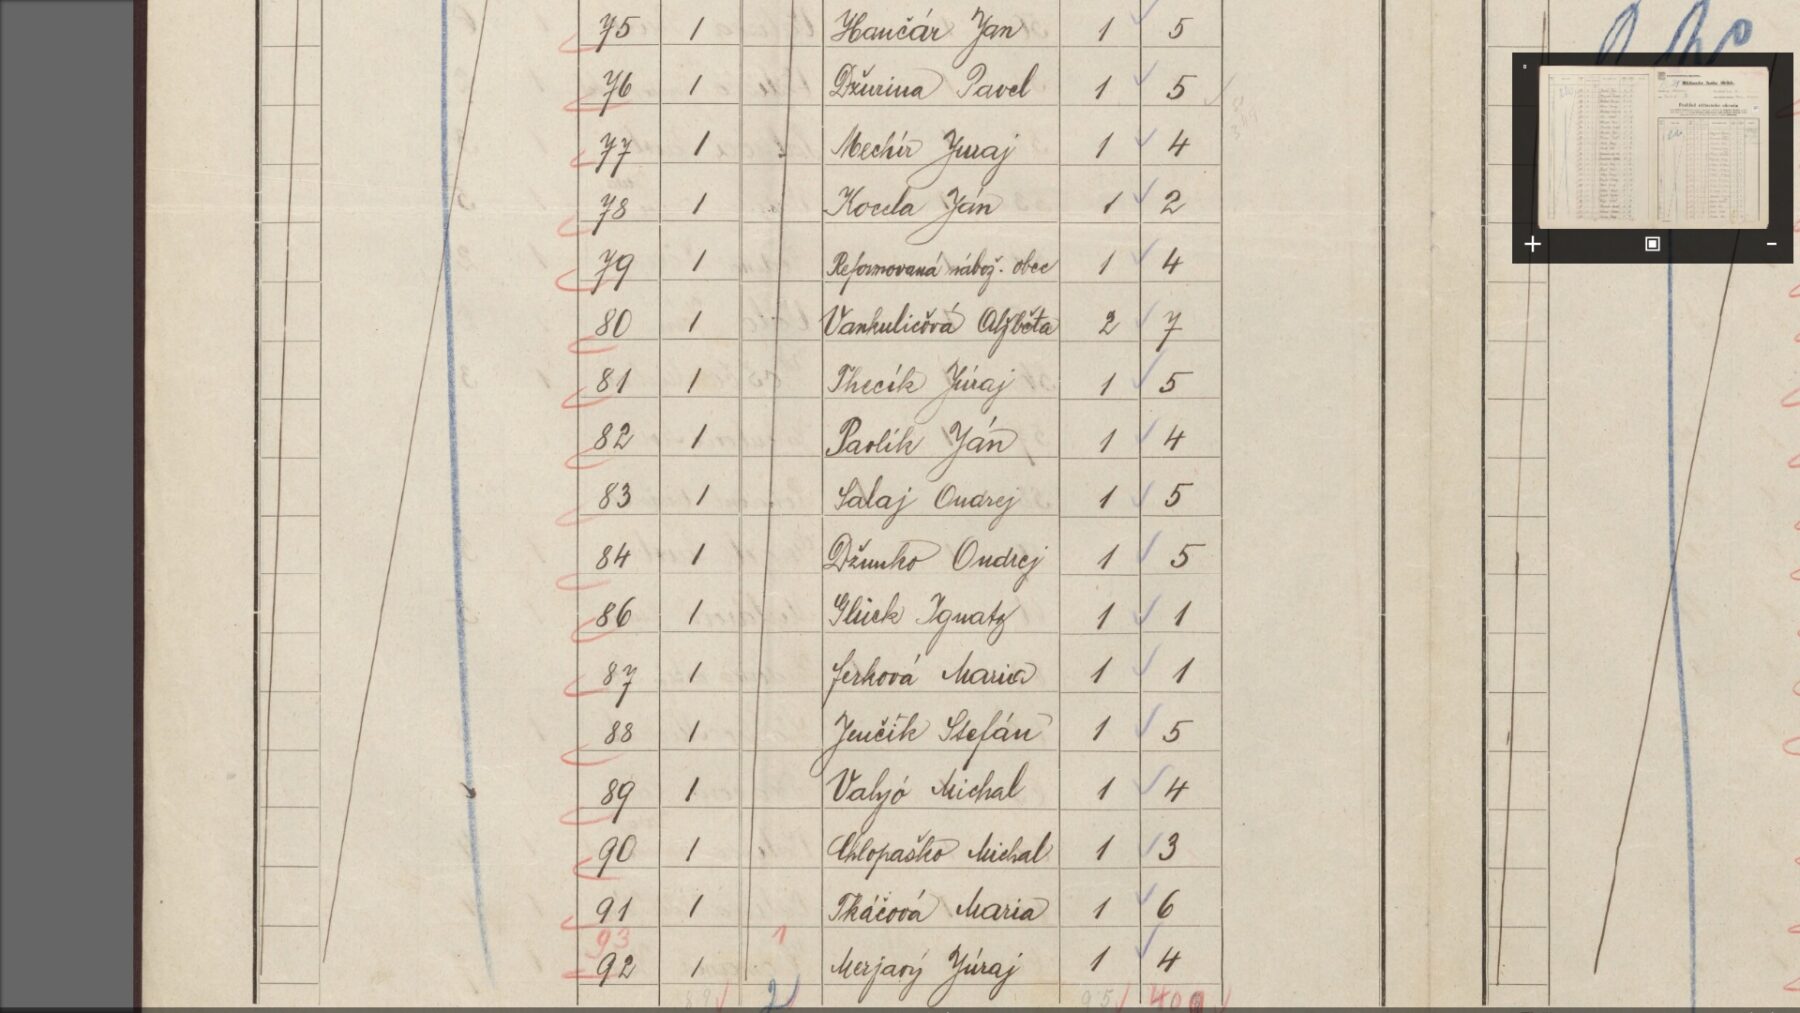 75 1 Hančár Jan 1 5
76 1 Džurina Pavel 1 5
77 1 Mechír Juraj 1 4
78 1 Kocela Ján 1 2
79 1 Reformovaná nábož. obec 1 4
80 1 Vankuličová Alžběta 2 7
81 1 Thecík Júraj 1 5
82 1 Pavlík Ján 1 4
83 1 Salaj Ondrej 1 5
84 1 Džunko Ondrej 1 5
86 1 Glück Ignatz 1 1
87 1 Ferková Maria 1 1
88 1 Jenčík Stefán 1 5
89 1 Valyó Michal 1 4
90 1 Chlopaško Michal 1 3
91 1 Tkáčová Maria 1 6
93 1
92 1 Merjavý Júraj 1 4
89 2 95 400